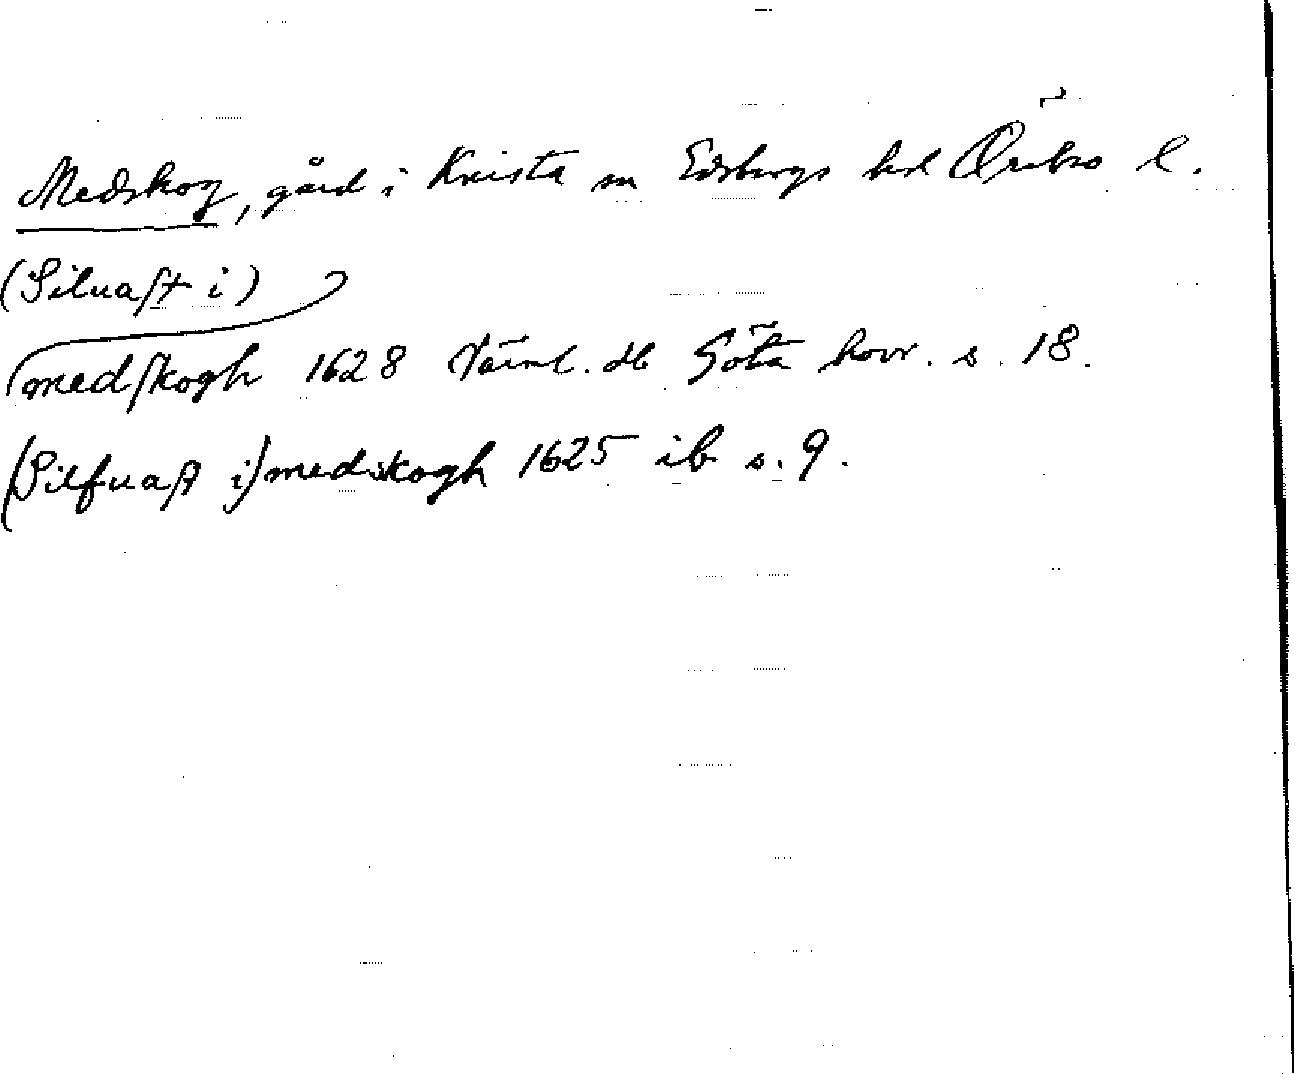 Medskog, gård i Knista sn Edsbergs hd Örebro l.
(Siluast i)
medskogh 1628 Värml. db Göta hovr. s. 18.
(Silfuast i) medskogh 1625 ib s. 9.